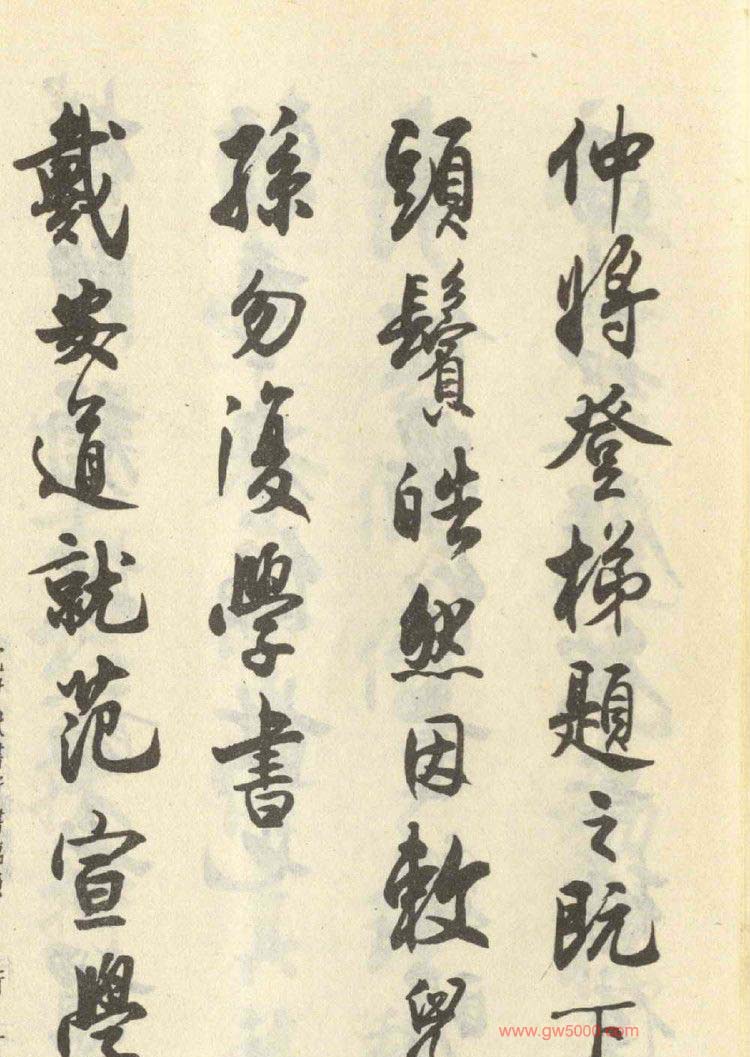 仲將登梯題之既下
頭鬢皓然因敕兒
孫勿復學書
戴安道就范宣學
www.gw5000.com